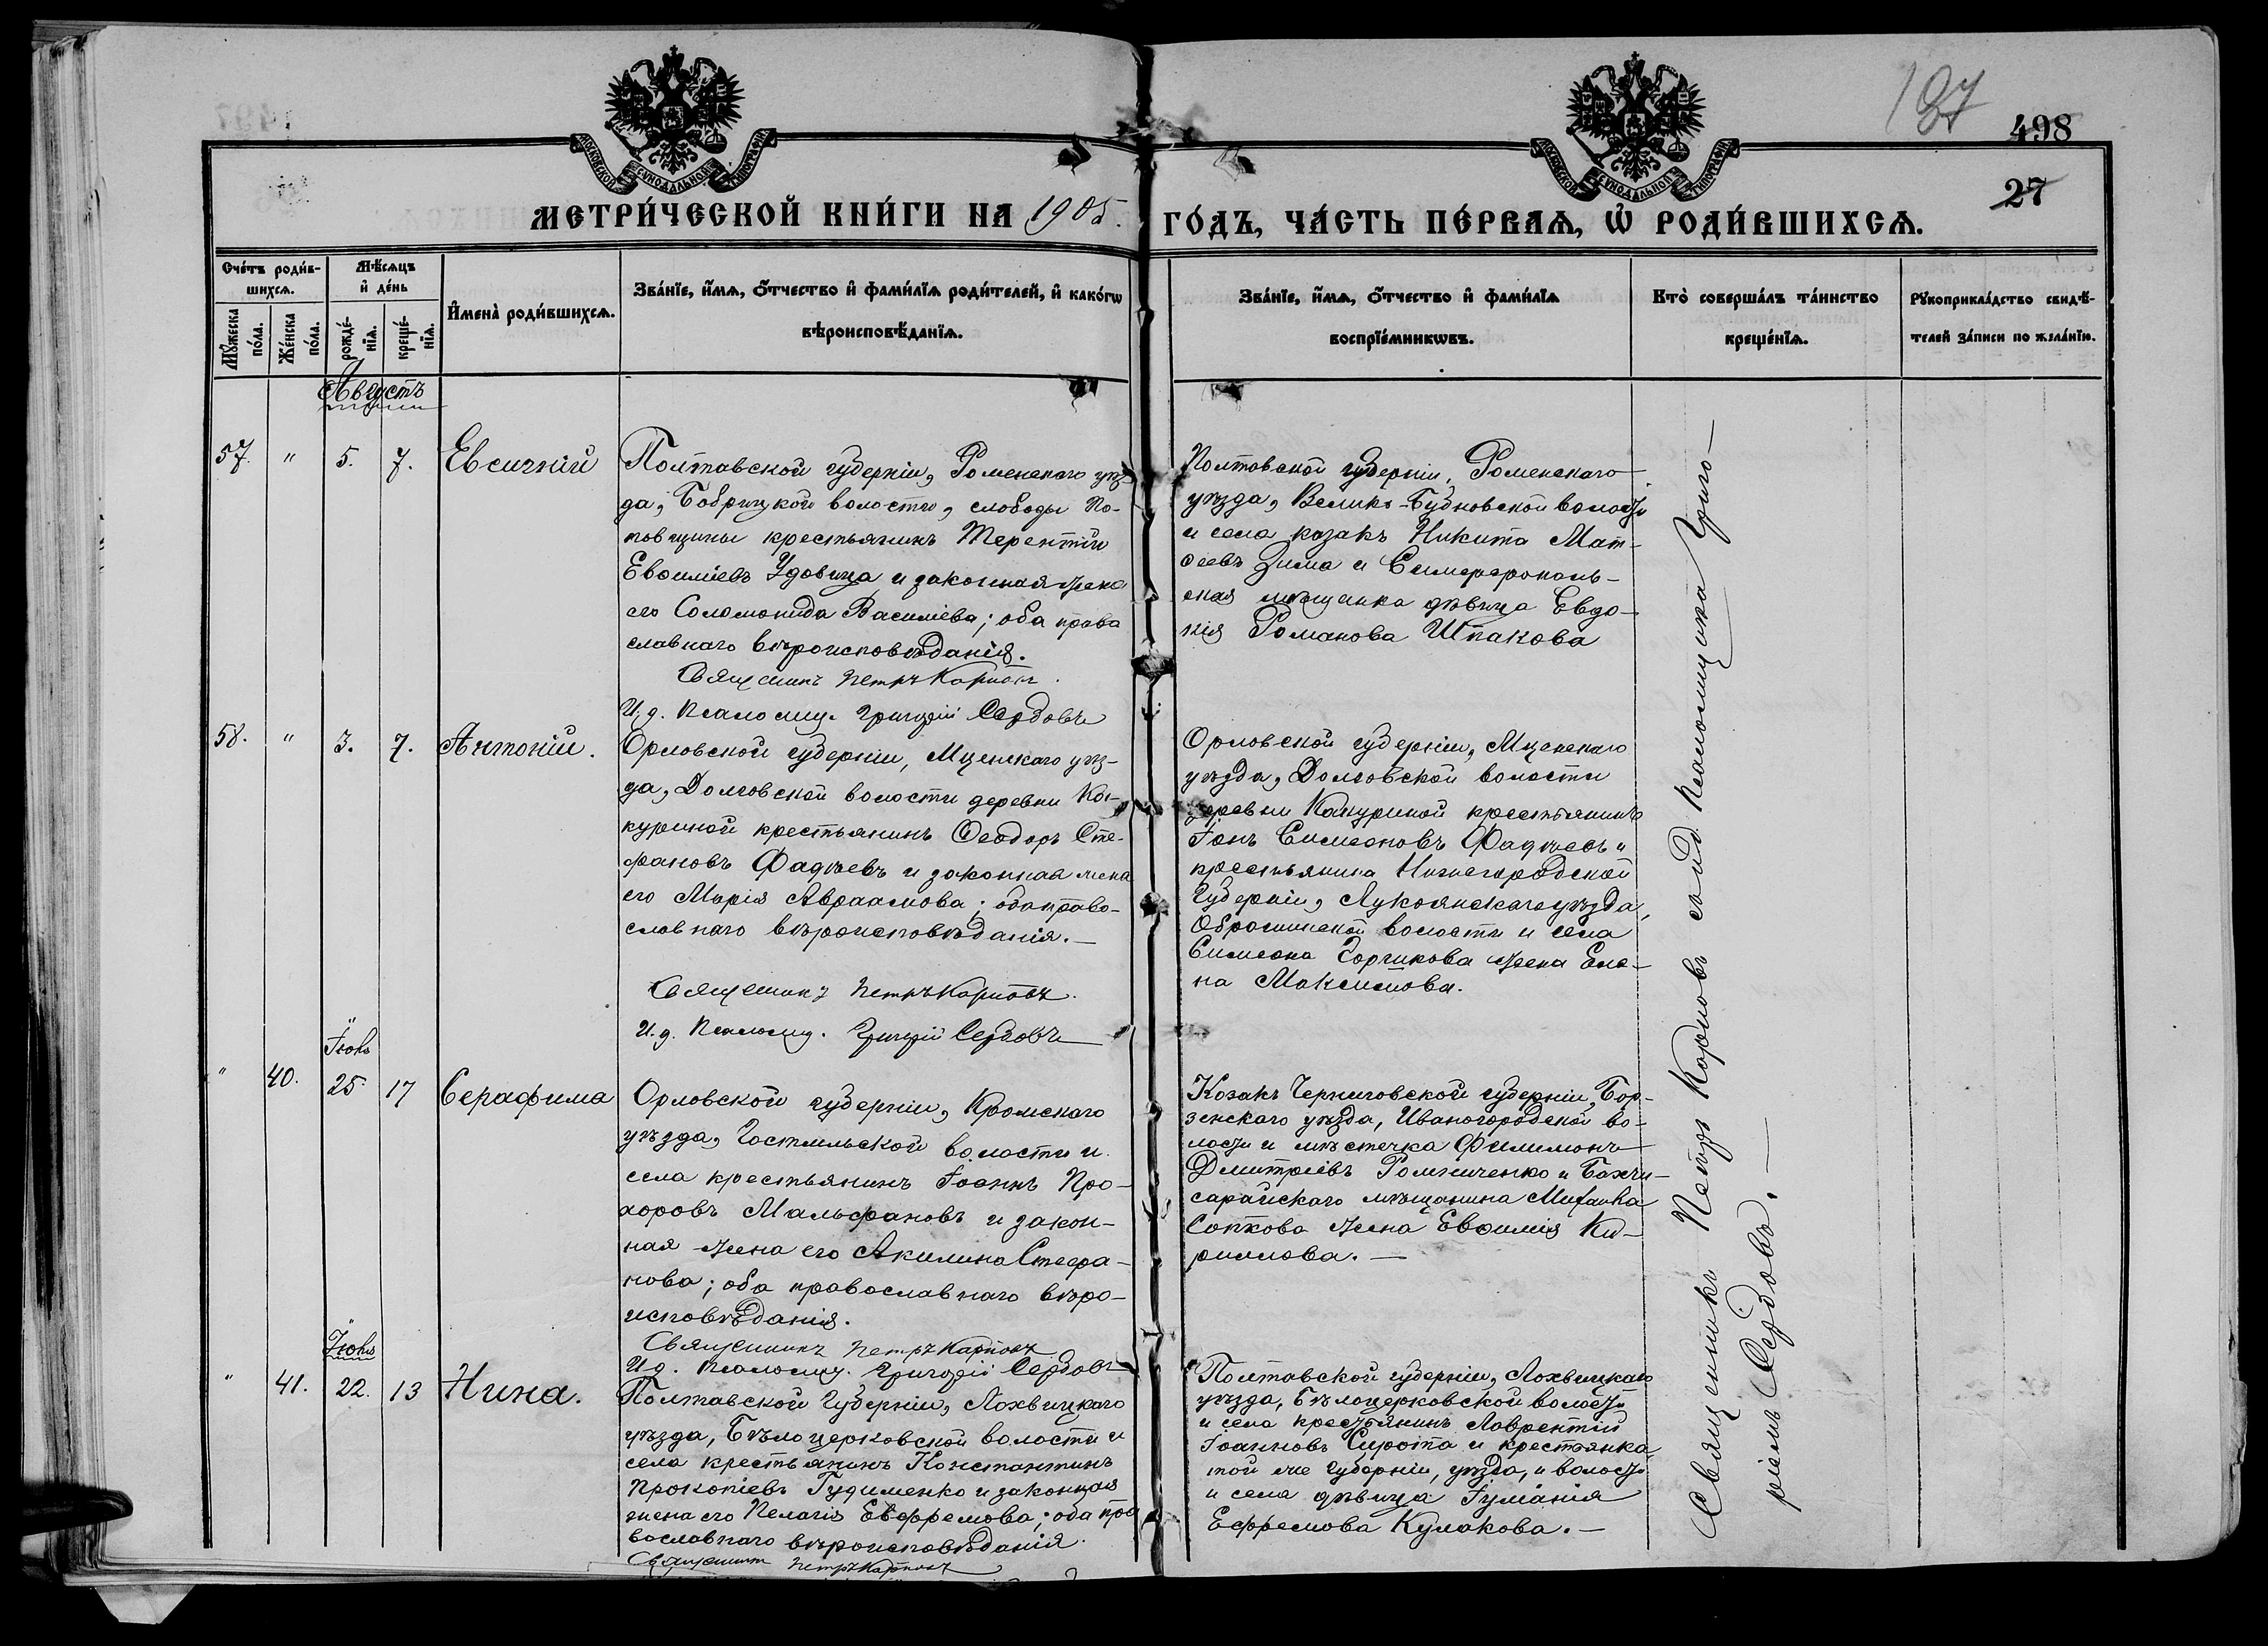 127
498
27
МОСКОВСКОЙ СѴНОДАЛЬНОЙ ТИПОГРАФІИ
МОСКОВСКОЙ СѴНОДАЛЬНОЙ ТИПОГРАФІИ
МЕТРИ́ЧЕСКОЙ КНИ́ГИ НА 1905. ГО́ДЪ, ЧА́СТЬ ПЕ́РВАѦ, Ѡ҆ РОДИ́ВШИХСѦ.
Сче́тъ роди́в-
шихсѧ.
Мꙋ́жеска по́ла.
Же́нска по́ла.
Мѣ́сѧцъ
и҆ де́нь
рожде́-
нїѧ.
креще́-
нїѧ.
И҆мена̀ роди́вшихсѧ.
Зва́нїе, и҆́мѧ, ѻ҆́тчество и҆ фами́лїѧ роди́телей, и҆ како́гѡ
вѣроисповѣ́данїѧ.
Зва́нїе, и҆́мѧ, ѻ҆́тчество и҆ фами́лїѧ
воспрїе́мникѡвъ.
Кто̀ соверша́лъ та́инство
креще́нїѧ.
Рꙋкоприкла́дство свидѣ́-
телей за́писи по жела́нїю.
Августъ
57. " 5. 7. Евсигній
Полтавской губерніи, Роменскаго уѣз-
да, Бобрицкой волости, слободы По-
повщины крестьянинъ Терентій
Евфиміевъ Удовица и законная жена
его Соломонида Василіева; оба право
славнаго вѣроисповѣданія.
Священникъ Петръ Карповъ.
И. д. Псаломщ. Григорій Сердовъ
Полтавской губерніи, Роменскаго
уѣзда, Велико-Бубновской волости
и села козакъ Никита Мат-
ѳеевъ Зима и Симферополь-
ская мѣщанка дѣвица Евдо-
кія Романова Шпакова
58. " 3. 7. Антоній.
Орловской губерніи, Мценскаго уѣз-
да, Долговской волости деревни Ка-
куриной крестьянинъ Ѳеодоръ Сте-
фановъ Фадѣевъ и законная жена
его Марія Авраамова; оба право-
славнаго вѣроисповѣданія.—
Священникъ Петръ Карповъ.
И. д. Псаломщ. Григорій Сердовъ
Орловской губерніи, Мценскаго
уѣзда, Долговской волости
деревни Какуриной крестьянинъ
Симеоновъ Фадѣевъ и
крестьянина Нижегородской
Губерніи, Лукоянскаго уѣзда,
волости и села
Симеона жена Еле-
на Максимова.
Іюнь
" 40. 25. 17 Серафима
Орловской губерніи, Кромскаго
уѣзда, Гостмльской волости и
села крестьянинъ Іоаннъ Про-
хоровъ Мальфановъ и закон-
ная жена его Акилина Стефа-
нова; оба православнаго вѣро-
исповѣданія.
Священникъ Петръ Карповъ
И. д. Псаломщ. Григорій Сердовъ
Козакъ Черниговской губерніи, Бор-
зенскаго уѣзда, Иваногородской во-
лости и мѣстечка Филимонъ
Дмитріевъ Романченко и Бахчи-
сарайскаго мѣщанина Михаила
Сопкова жена Евфимія Ки-
риллова.—
Іюнь
" 41. 22. 13 Нина.
Полтавской Губерніи, Лохвицкаго
уѣзда, Бѣлоцерковской волости и
села крестьянинъ Константинъ
Прокопіевъ Гудименко и законная
жена его Пелагія Евфремова; оба пра
вославнаго вѣроисповѣданія.
Священникъ Петръ Карповъ
Полтавской губерніи, Лохвицкаго
уѣзда, Бѣлоцерковской волости
и села крестьянинъ Лаврентій
Іоанновъ Сирота и крестьянка
той же губерніи, уѣзда, и волости
и села дѣвица Іуліанія
Ефремова Кулакова.—
Священникъ Петръ Карповъ съ и. д. псаломщика Григо-
ріемъ Сердовъ.—